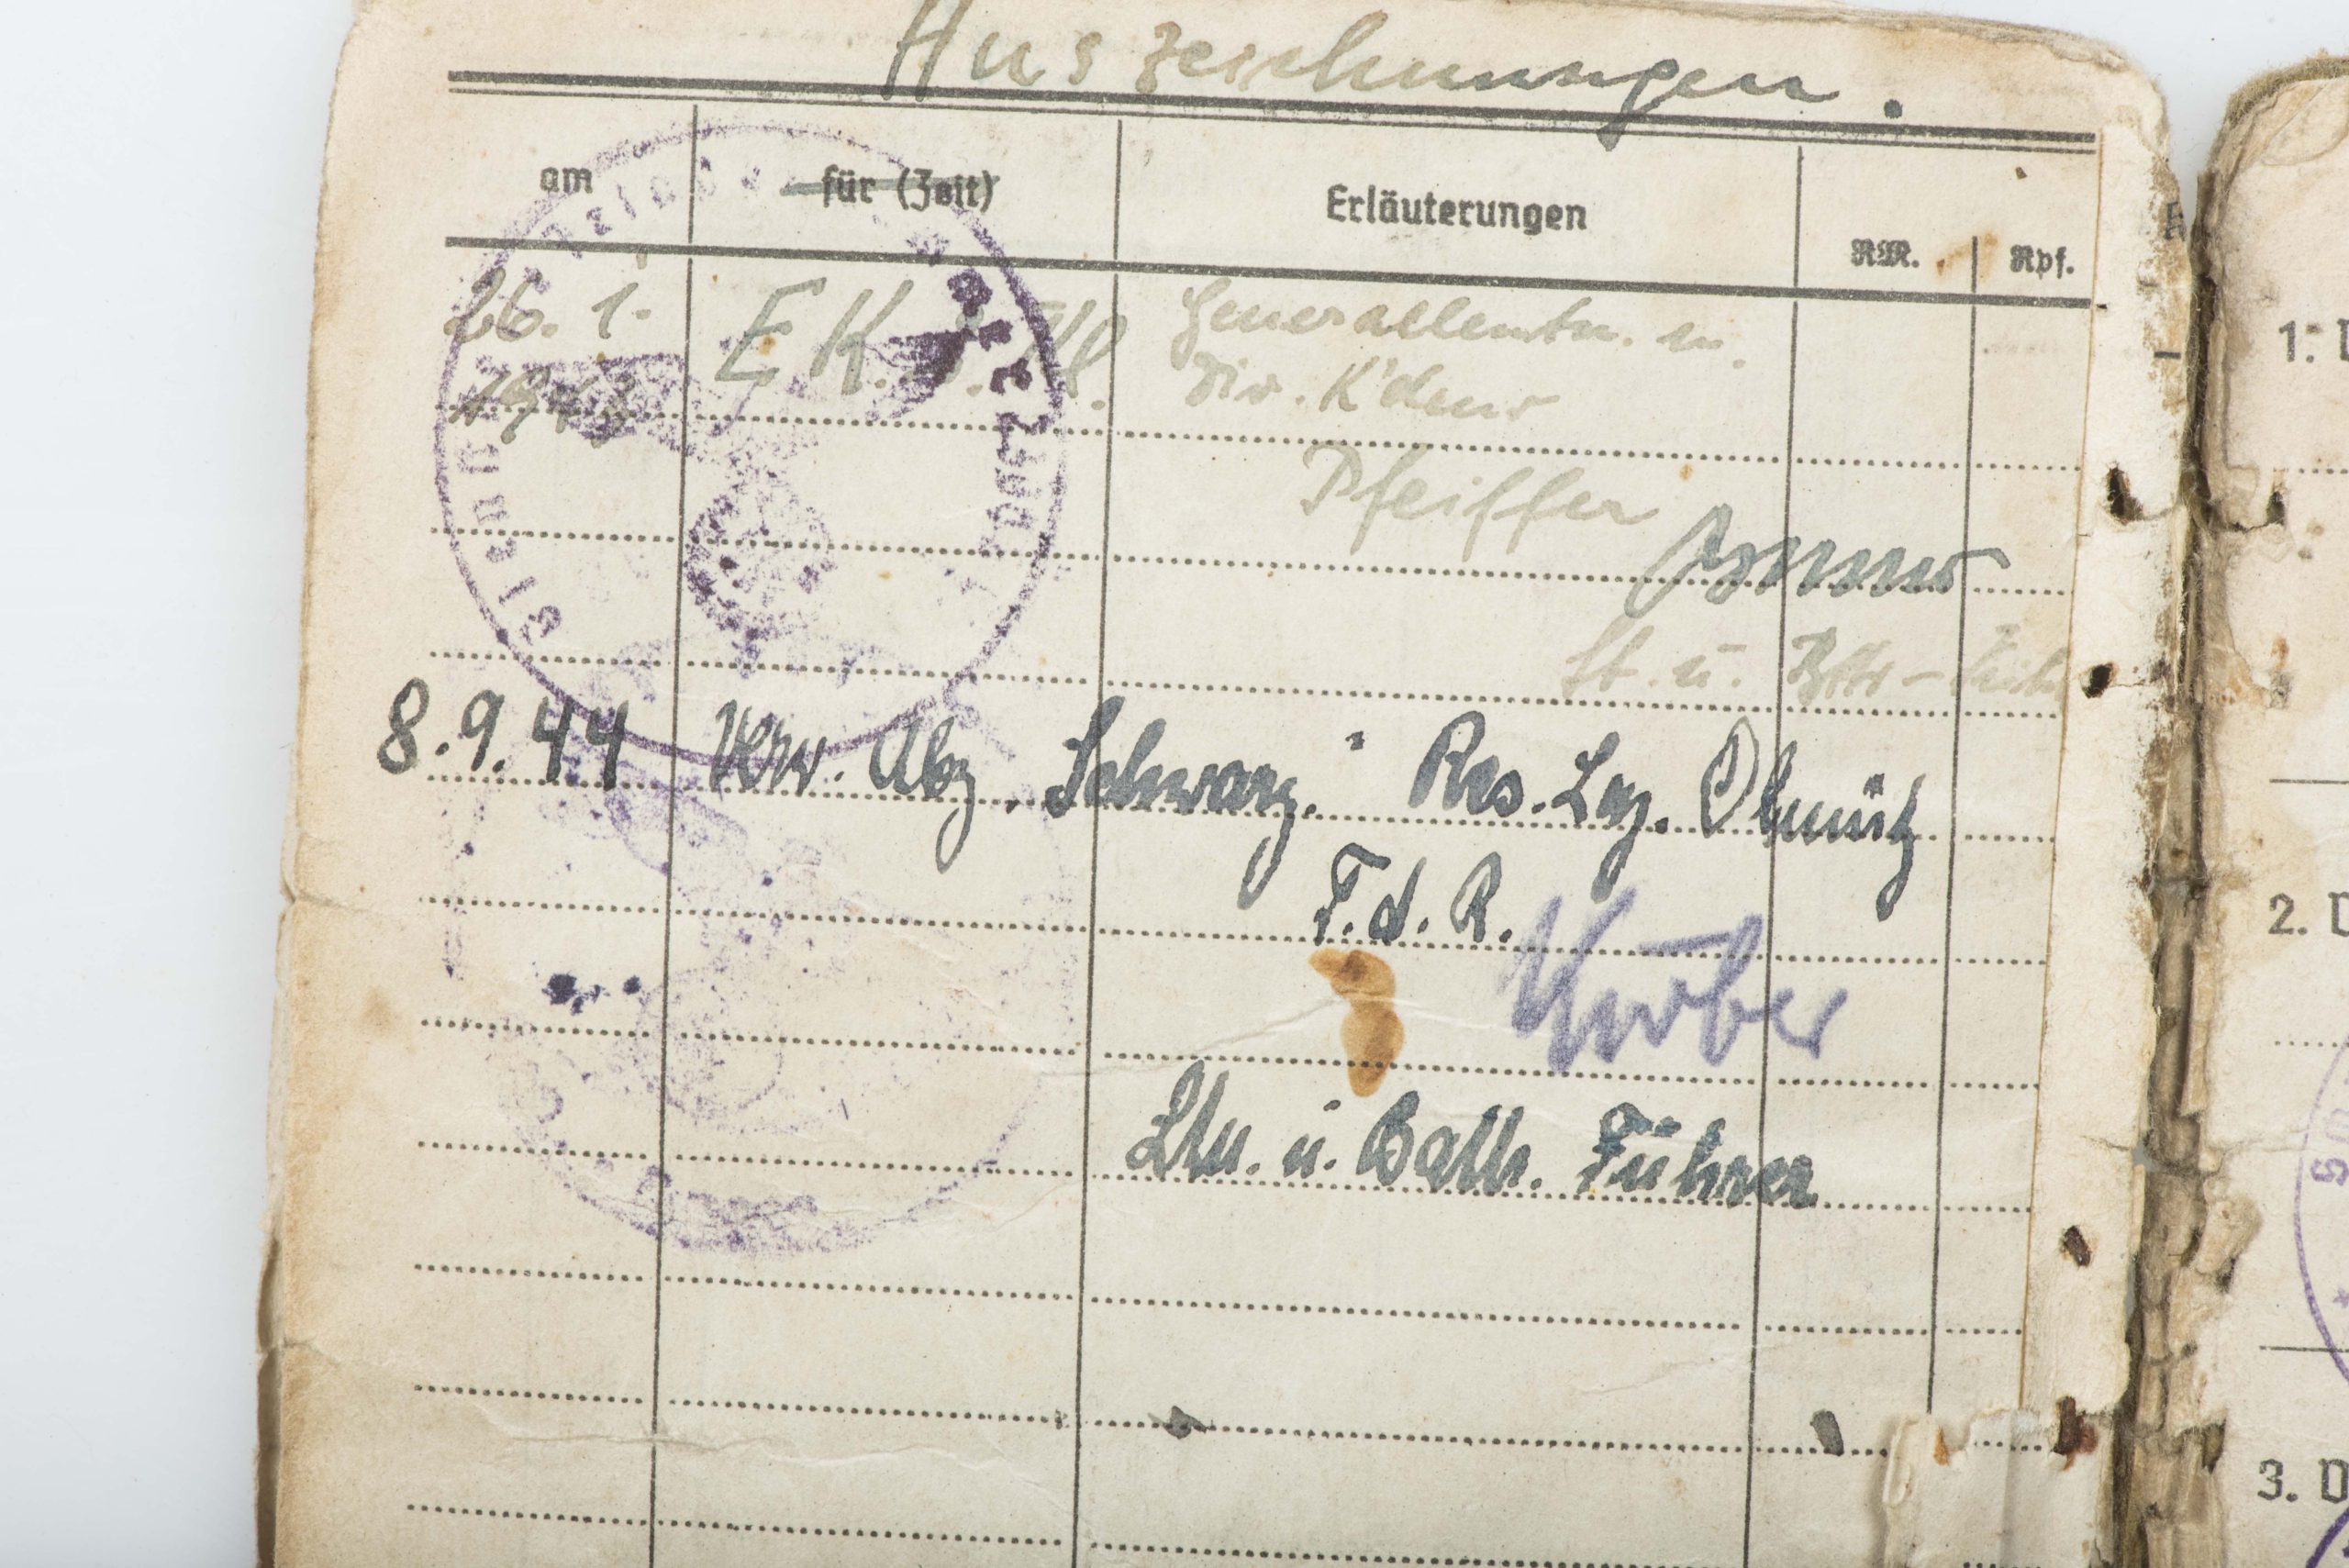 Auszeichnungen.
am für (Zeit) Erläuterungen RM. Rpf.
26. 1. E K. Kl. Generalleutn. u.
Div. K'deur
Pfeiffer
Lt. u. Bttr-
8.9.44 Verw. Abz. Schwarz. Res. Laz. Olmütz
F.d.R.
Ltn. u. Battr. Führer
1. D
2. D
3. D